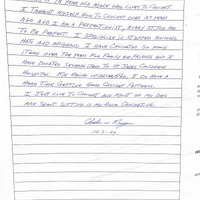 YEAR OLD MALE WHO LOVES TO CROCHET.
I TAUGHT MYSELF HOW TO CROCHET OVER 27 YEARS
AGO AND I AM A PERFECTIONIST, EVERY STITCH HAS
TO BE PERFECT. I SPECIALIZE IN STUFFED ANIMALS
HATS AND AFGHANS. I HAVE CROCHETED SO MANY
ITEMS OVER THE YEARS FOR FAMILY AND FRIENDS AND I
HAVE DONATED SEVERAL ITEMS TO ST JUDES CHILDRENS
HOSPITAL. ME BEING INCARCERATED, I DO HAVE A
HARD TIME GETTING GOOD CROCHET PATTERNS.
I JUST LOVE TO CROCHET AND MOST OF MY DAYS
ARE SPENT SITTING IN MY ROOM CROCHETING.